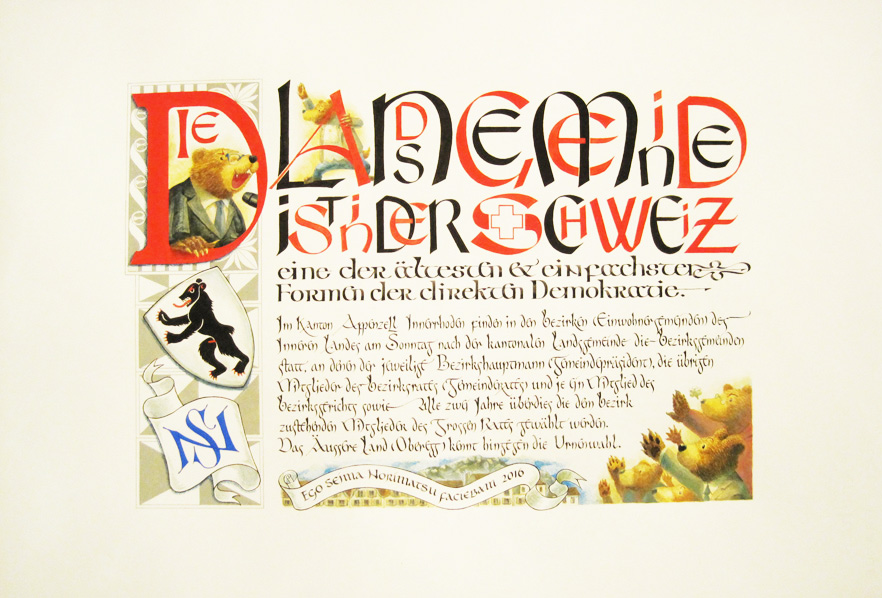 Die Landsgemeinde
ist in der Schweiz
eine der ältesten & einfachsten
Formen der direkten Demokratie.
Im Kanton Appenzell Innerrhoden finden in den Bezirken (Einwohnergemeinden des
Inneren Landes am Sonntag nach der kantonalen Landsgemeinde die Bezirksgemeinden
statt, an denen der jeweilige Bezirkshauptmann (Gemeindepräsident), die übrigen
Mitglieder des Bezirksrats (Gemeinderates) und je ein Mitglied des
Bezirksgerichts sowie Alle zwei Jahre überdies die dem Bezirk
zustehenden Mitglieder des Grossen Rates gewählt werden.
Das Äussere Land (Oberegg) kennt hingegen die Urnenwahl.
NS
EGO SENNA NORIMATSU FACIEBAM 2016